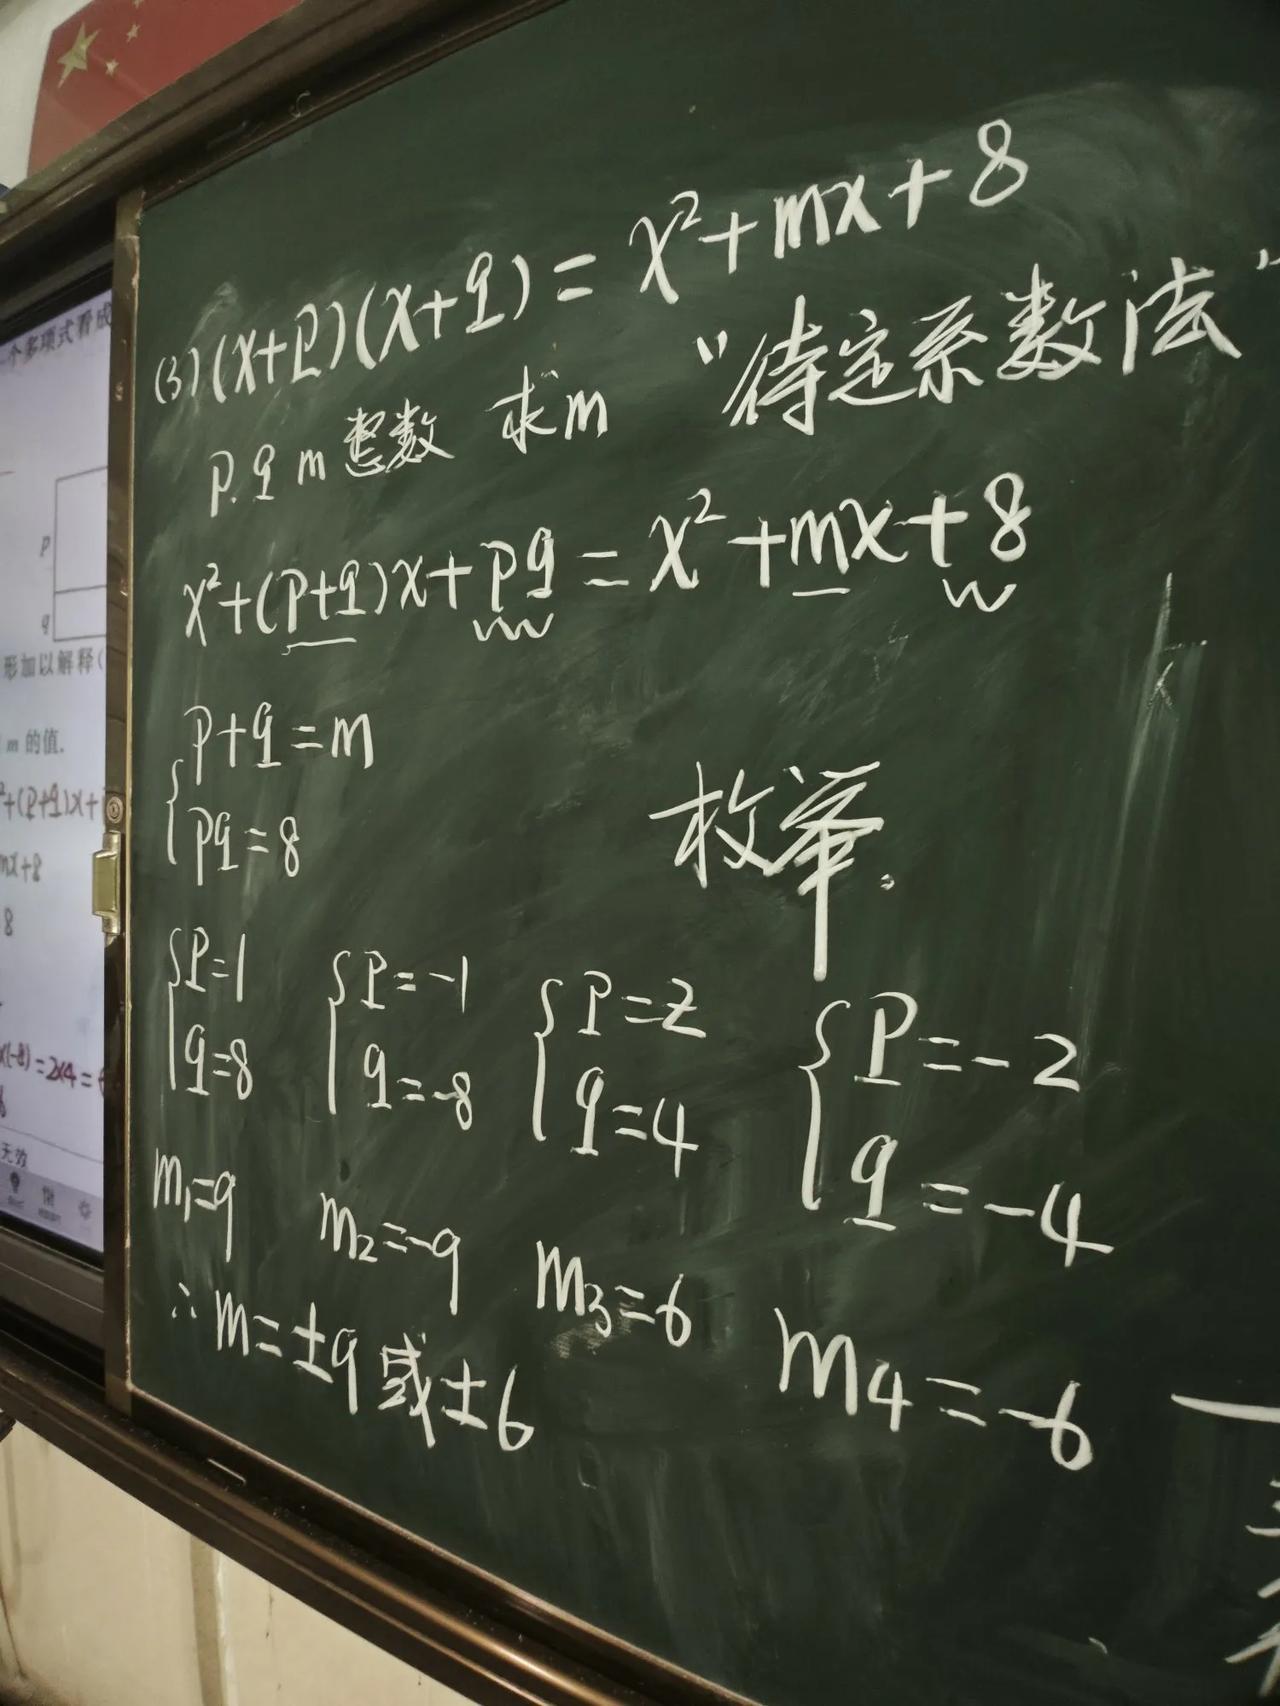 (3) (x+p)(x+q) = x²+mx+8
p.q m 整数 求m “待定系数法”
x²+(p+q)x+pq = x²+mx+8
{p+q=m
{pq=8
枚举.
{p=1
{q=8
{p=-1
{q=-8
{p=2
{q=4
{p=-2
{q=-4
m₁=9
m₂=-9
m₃=6
m₄=-6
∴ m=±9或±6
一个多项式看成
p
q
形加以解释(
m 的值.
²+(p+q)x+
mx+8
8
x(-8)=2x4=
无效